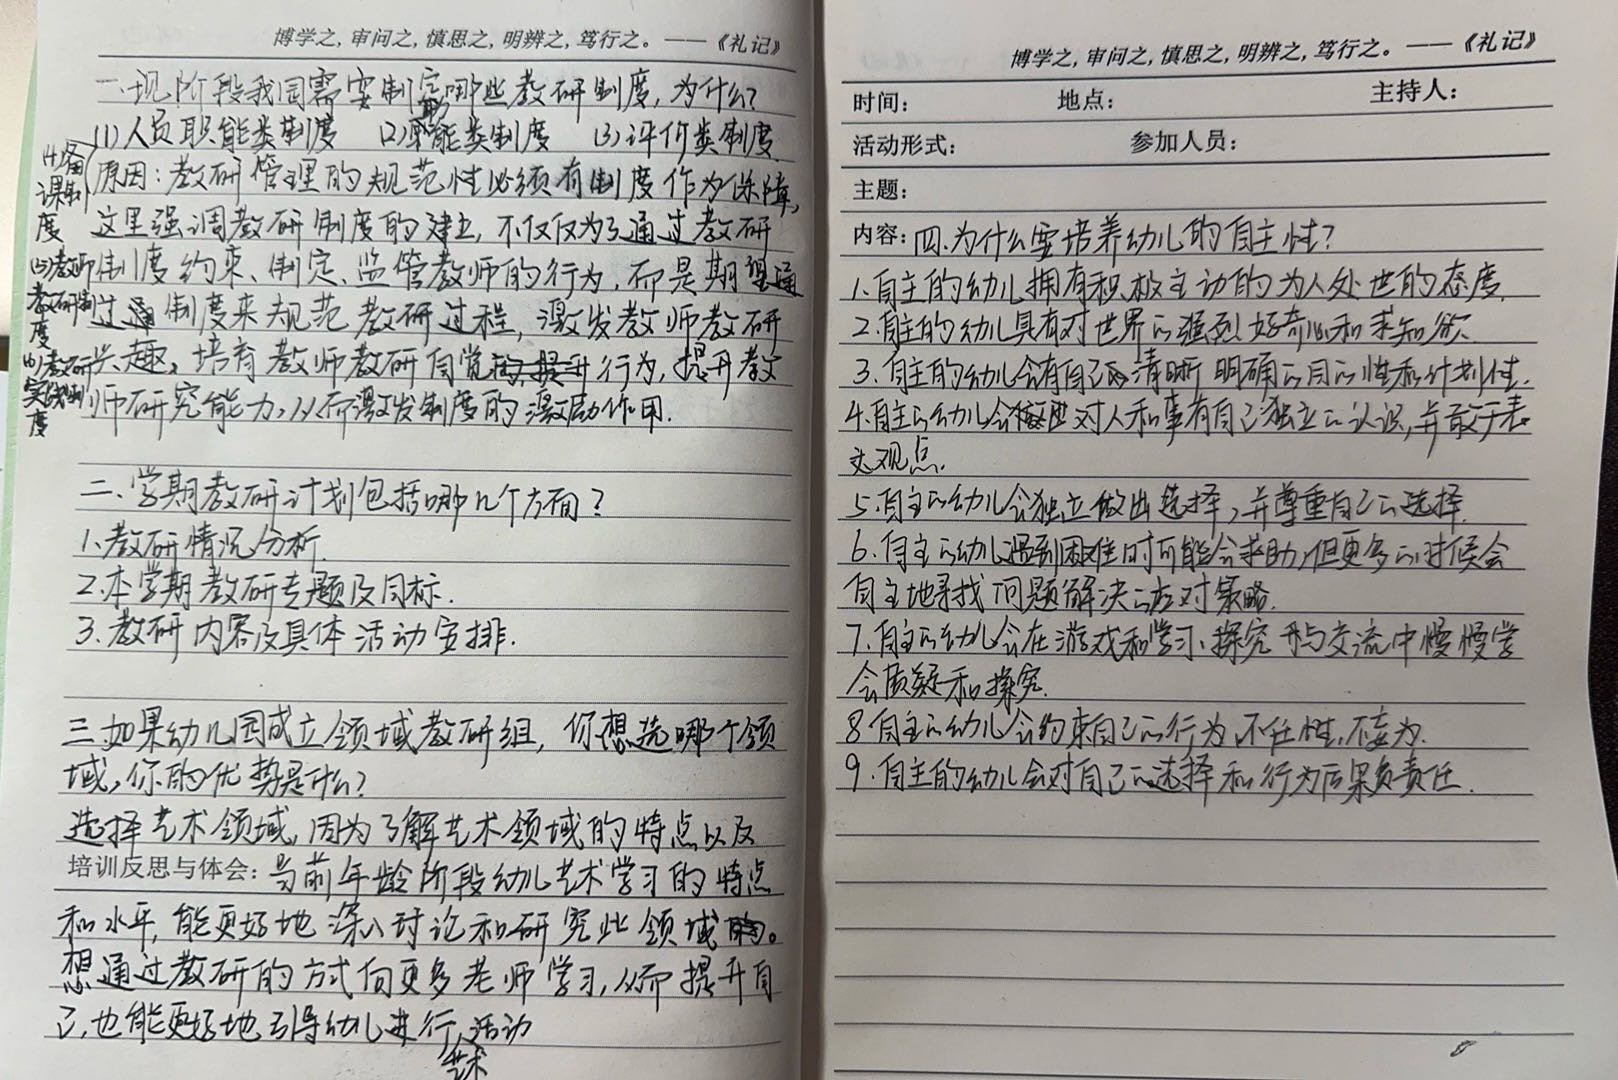 博学之,审问之,慎思之,明辨之,笃行之。——《礼记》
一.现阶段我园需要制定哪些教研制度,为什么?
(1)人员职能类制度 (2)职能类制度 (3)评价类制度
(4)备课制度
(5)教师教研制度
(6)教研实践制度
原因:教研管理的规范性必须有制度作为保障,
这里强调教研制度的建立,不仅仅为了通过教研
制度约束、制定、监管教师的行为,而是期望通
过制度来规范教研过程,激发教师教研
兴趣,培育教师教研自觉行为,提升教
师研究能力,从而激发制度的激励作用.
二、学期教研计划包括哪几个方面?
1.教研情况分析.
2.本学期教研专题及目标.
3.教研内容及具体活动安排.
三.如果幼儿园成立领域教研组,你想选哪个领
域,你的优势是什么?
选择艺术领域,因为了解艺术领域的特点以及
培训反思与体会:当前年龄阶段幼儿艺术学习的特点
和水平,能更好地深入讨论和研究此领域。
想通过教研的方式向更多老师学习,从而提升自
己,也能更好地引导幼儿进行艺术活动
博学之,审问之,慎思之,明辨之,笃行之。——《礼记》
时间: 地点: 主持人:
活动形式: 参加人员:
主题:
内容:四.为什么要培养幼儿的自主性?
1.自主的幼儿拥有积极主动的为人处世的态度.
2.自主的幼儿具有对世界的强烈好奇心和求知欲.
3.自主的幼儿会有自己的清晰明确的目的性和计划性.
4.自主的幼儿会对人和事有自己独立的认识,并敢于表
达观点.
5.自主的幼儿会独立做出选择,并尊重自己的选择.
6.自主的幼儿遇到困难时可能会求助,但更多的时候会
自主地寻找问题解决的应对策略.
7.自主的幼儿会在游戏和学习、探究与交流中慢慢学
会质疑和探究.
8.自主的幼儿会约束自己的行为,不任性,不妄为.
9.自主的幼儿会对自己的选择和行为后果负责任.